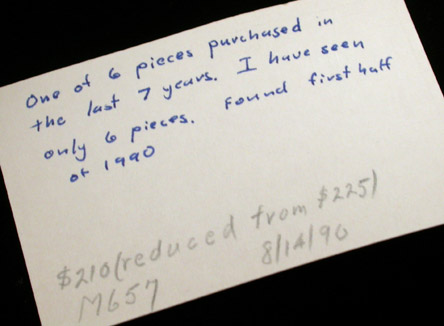 One of 6 pieces purchased in
the last 7 years. I have seen
only 6 pieces. Found first half
of 1990
$210 (reduced from $225)
M657 8/14/90